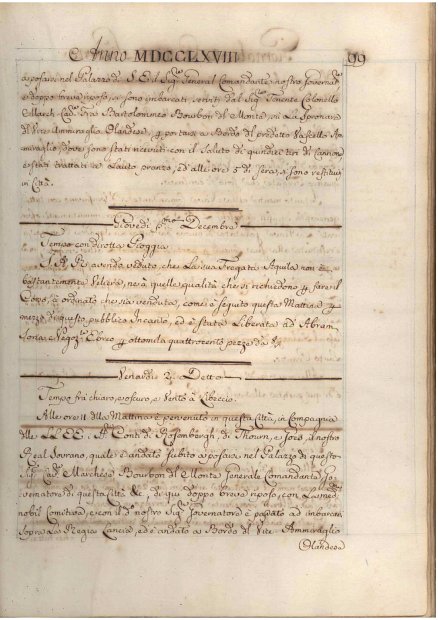 Anno MDCCLXVIII
99
a posarsi nel Palazzo di S. E. il Sig.r General Comandante nostro Governat.e
e doppo breve riposo, si sono imbarcati serviti dal Sig.r Tenente Colonello
March. Cav. Fra Bartolommeo Bourbon del Monte, su La
di Vice Ammiraglio Olandese, p portarsi a Bordo del predetto Vascello Am
miraglio, dove sono stati ricevuti con il Saluto di quindici tiri di Cannone
e stati trattati di Lauto pranzo, ed alle ore 5 di sera, si sono restituiti
in Città.
Giovedì p.mo Decembre
Tempo con dirotta Pioggia
S. A. R. avendo veduto, che La sua Fregata Aquila non è
bastantemente Veliera, nè à quelle qualità che si richiedono p fare il
Corso, à ordinato che sia venduta, come è seguito questa Mattina p
mezzo di questo pubblico Incanto, ed è stata Liberata ad Abram
Negoz.te Ebreo p ottomila quattrocento pezze da 8/r
Venerdì 2. Detto
Tempo frà chiaro, e oscuro, e Vento à Libeccio.
Alle ore 11 della Mattina è pervenuto in questa Città, in Compagnia
delle LL. EE. i Conti di Rosenbergh, di Thourn, e Goes, il nostro
Real Sovrano, quale è andato subito a posarsi nel Palazzo di questo
Sig.r Cav. Marchese Bourbon del Monte Generale Comandante, Go
vernatore di questa Città &c, di qui doppo breve riposo, con La med.
nobil Comitiva, e con il d.o nostro Sig.r Governatore è passato ad imbarcarsi
sopra La Regia Lancia, ed è andato a Bordo del Vice-Ammiraglio
Olandese